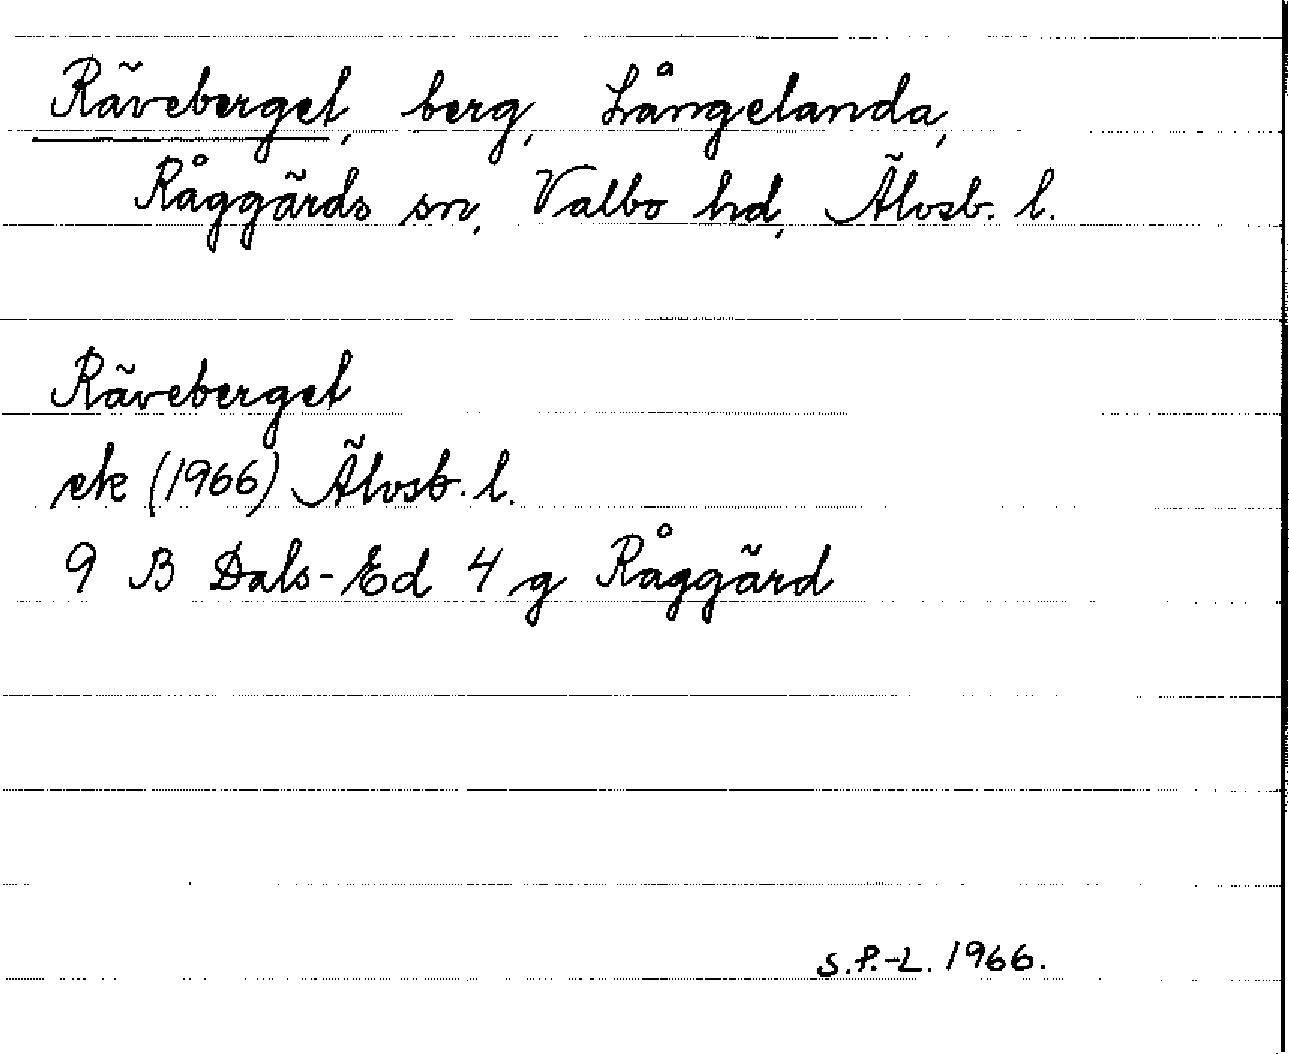 Räveberget, berg, Långelanda,
Råggärds sn, Valbo hd, Älvsb. l.
Räveberget
ek (1966) Älvsb. l.
9 B Dals-Ed 4 g Råggärd
S.P.-L. 1966.